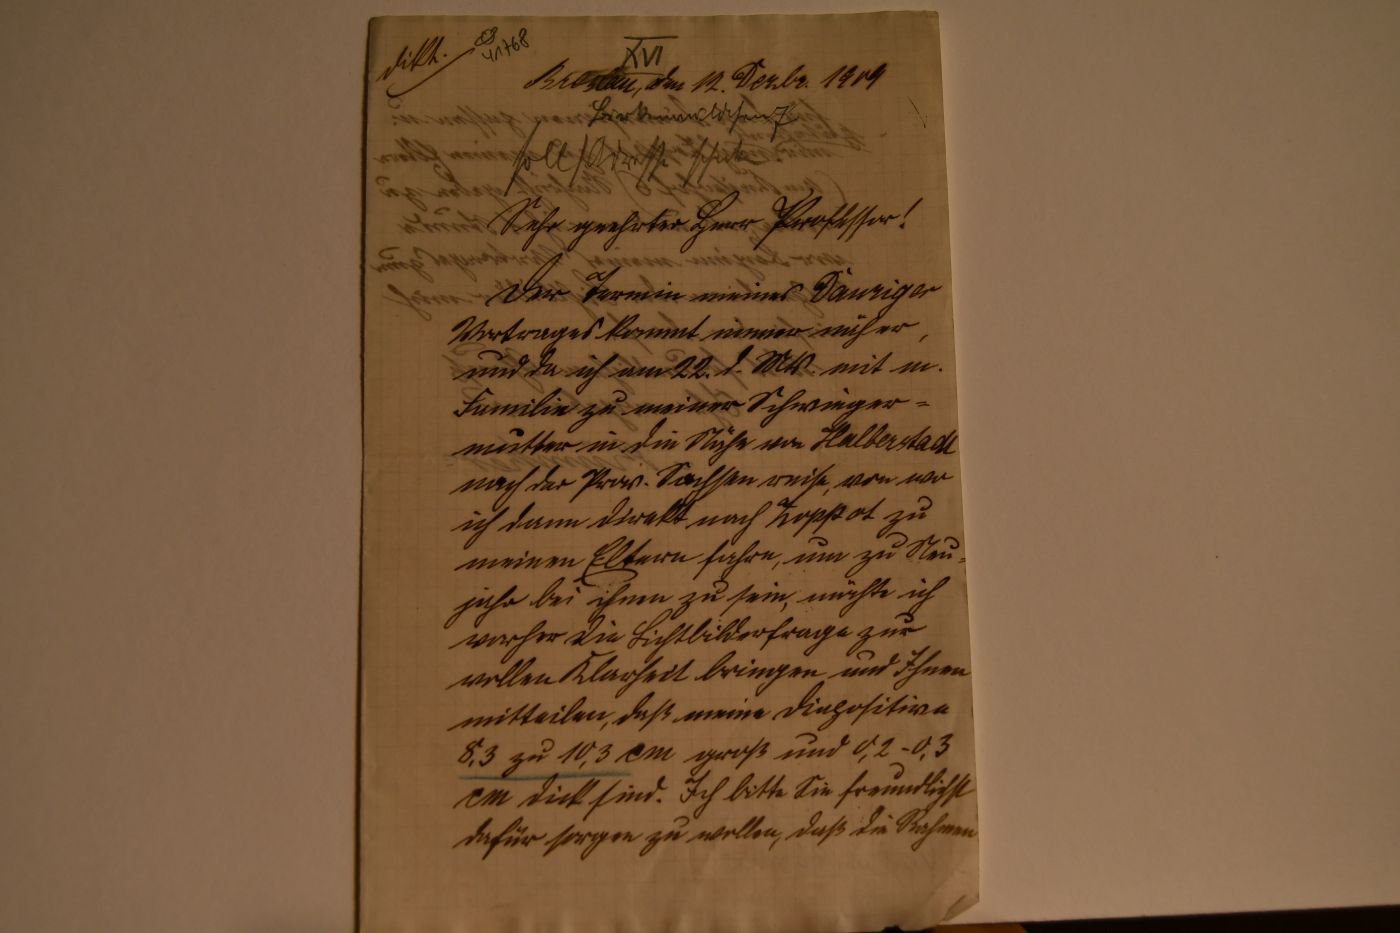 dikt.
41768
XVI
Breslau, den 12. Dezbr. 1909
Sehr geehrter Herr Professor!
Der Termin meines Danziger
Vortrages kommt immer näher,
und da ich am 22. d. Mts. mit m.
Familie zu meiner Schwieger=
mutter in die Nähe von Halberstadt
nach der Prov. Sachsen reise, von wo
ich dann direkt nach Zoppot zu
meinen Eltern fahre, um zu Neu=
jahr bei ihnen zu sein, möchte ich
vorher die Lichtbilderfrage zur
vollen Klarheit bringen und Ihnen
mitteilen, daß meine Diapositive
8,3 zu 10,3 cm groß und 0,2-0,3
cm dick sind. Ich bitte Sie freundlichst
dafür sorgen zu wollen, daß die Rahmen